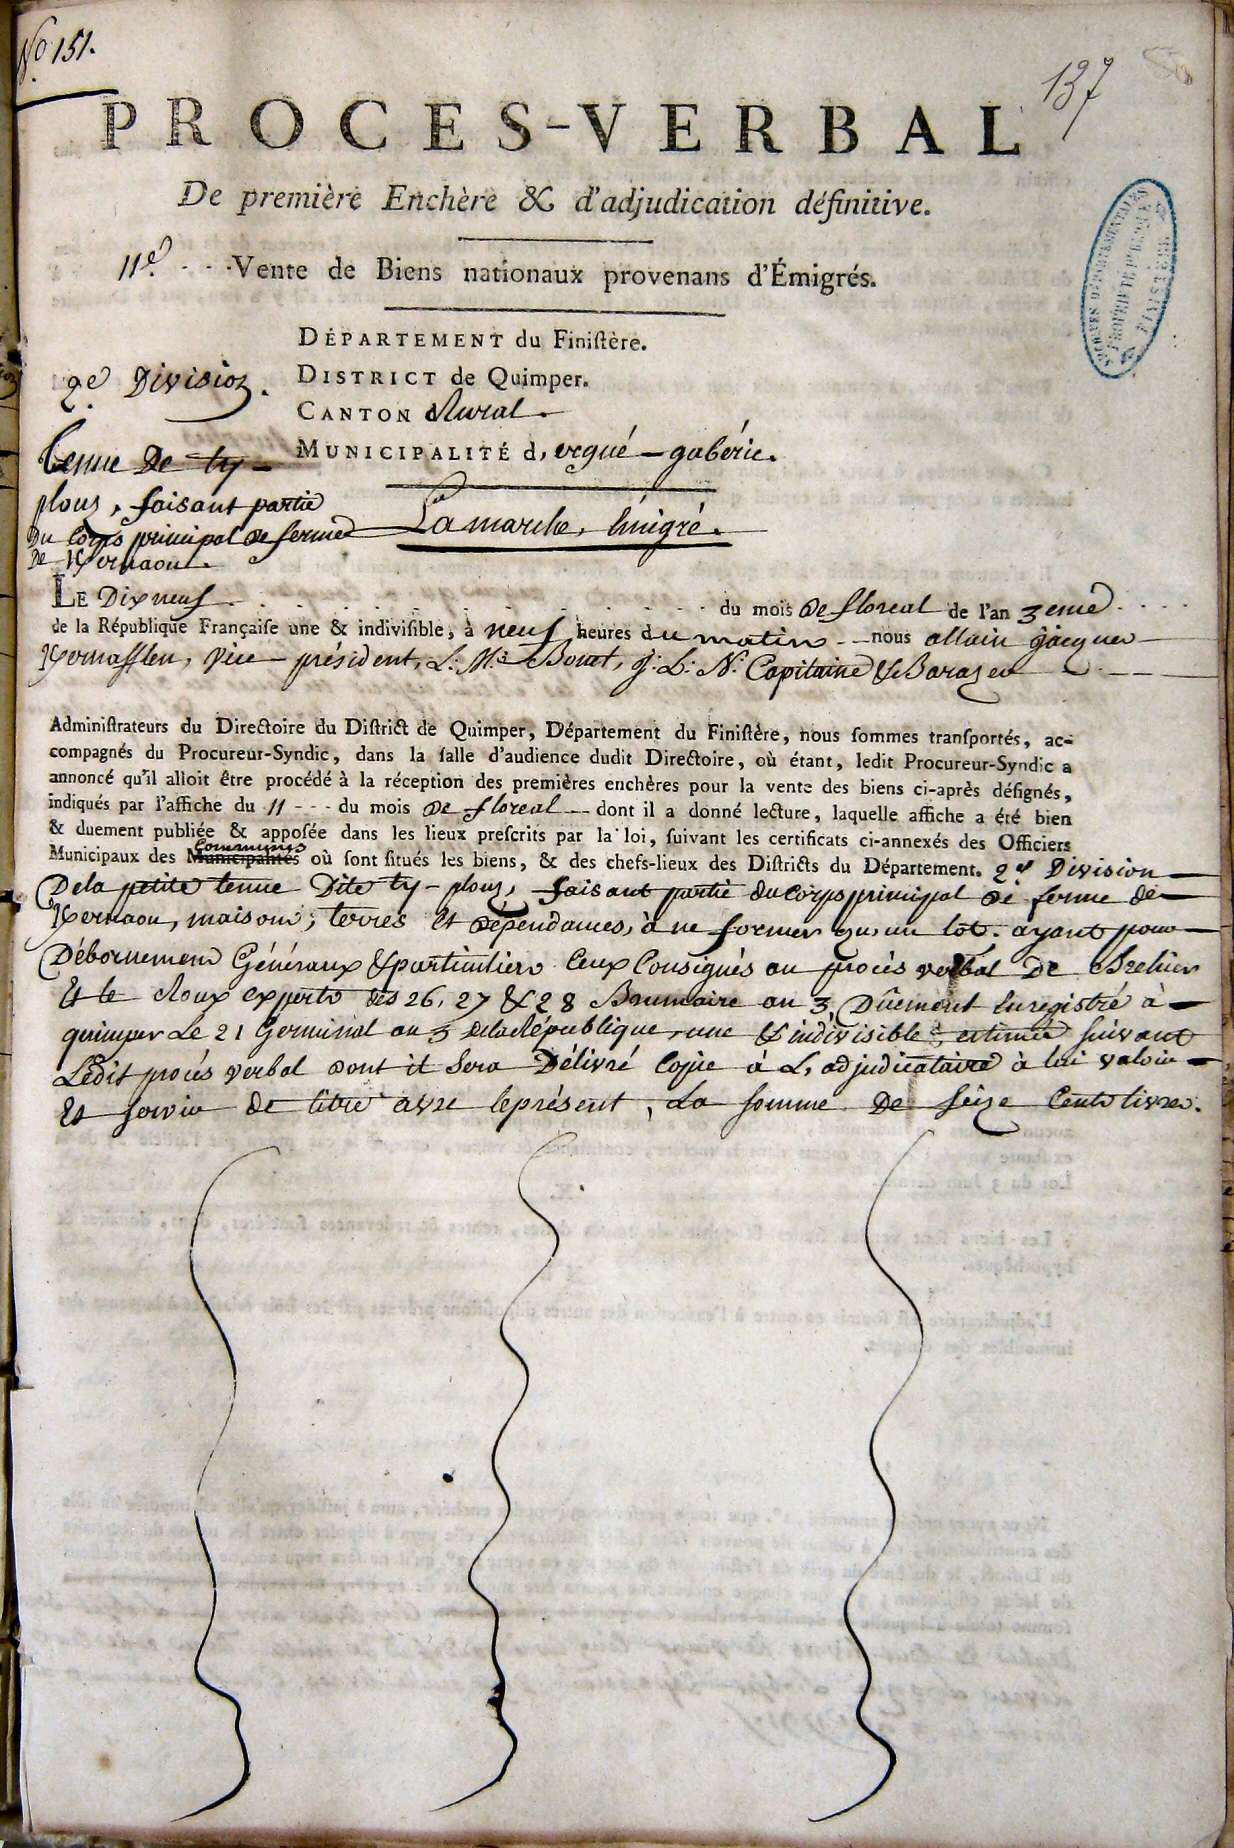 No 151.
137
PROCES-VERBAL
De première Enchère & d'adjudication définitive.
11e. - - - Vente de Biens nationaux provenans d'Émigrés.
DÉPARTEMENT du Finistère.
2e. Division.
DISTRICT de Quimper.
CANTON Rural.
MUNICIPALITÉ d, ergué-gabéric.
Tenue De ty-
plouz, faisant partie
Du Corps principal de ferme
De Kernaou.
La marche, Emigré.
LE Dix neuf . . . . . du mois De floreal de l'an 3eme . . . .
de la République Française une & indivisible, à neuf heures du matin -- nous allain jacques
Kernafflen, Vice-président, L: M.: Bonet, J: L: N: Capitaine & Barazer
Administrateurs du Directoire du District de Quimper, Département du Finistère, nous sommes transportés, ac-
compagnés du Procureur-Syndic, dans la salle d'audience dudit Directoire, où étant, ledit Procureur-Syndic a
annoncé qu'il alloit être procédé à la réception des premières enchères pour la vente des biens ci-après désignés,
indiqués par l'affiche du 11 - - - du mois De floreal -- dont il a donné lecture, laquelle affiche a été bien
& duement publiée & apposée dans les lieux prescrits par la loi, suivant les certificats ci-annexés des Officiers
Communes
Municipaux des Municipalités où sont situés les biens, & des chefs-lieux des Districts du Département. 2e Division
De la petite tenue Dite ty-plouz, faisant partie du Corps principal de ferme de
Kernaou, maisons, terres Et dépendances, à ne former qu,un lot. ayant pour
Débornemens Généraux & particuliers Ceux Consignés au procès verbal De Brelivet
Et le doux experts des 26, 27 & 28 Brumaire an 3, Dûement Enregistré à
quimper Le 21 Germinal an 3 de la République, une & indivisible, estimée suivant
Ledit procès verbal dont il sera Délivré Copie à L, adjudicataire à lui valoir
Et servir de titre avec le présent, La somme De seize Cents livres.